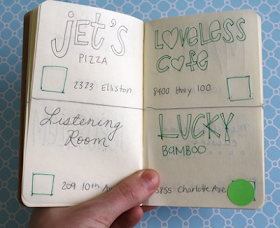 Jet's
PIZZA
2323 Elliston
Listening
Room
209 10th Ave
Loveless
Cafe
8400 Hwy 100
LUCKY
BAMBOO
5855 Charlotte Ave